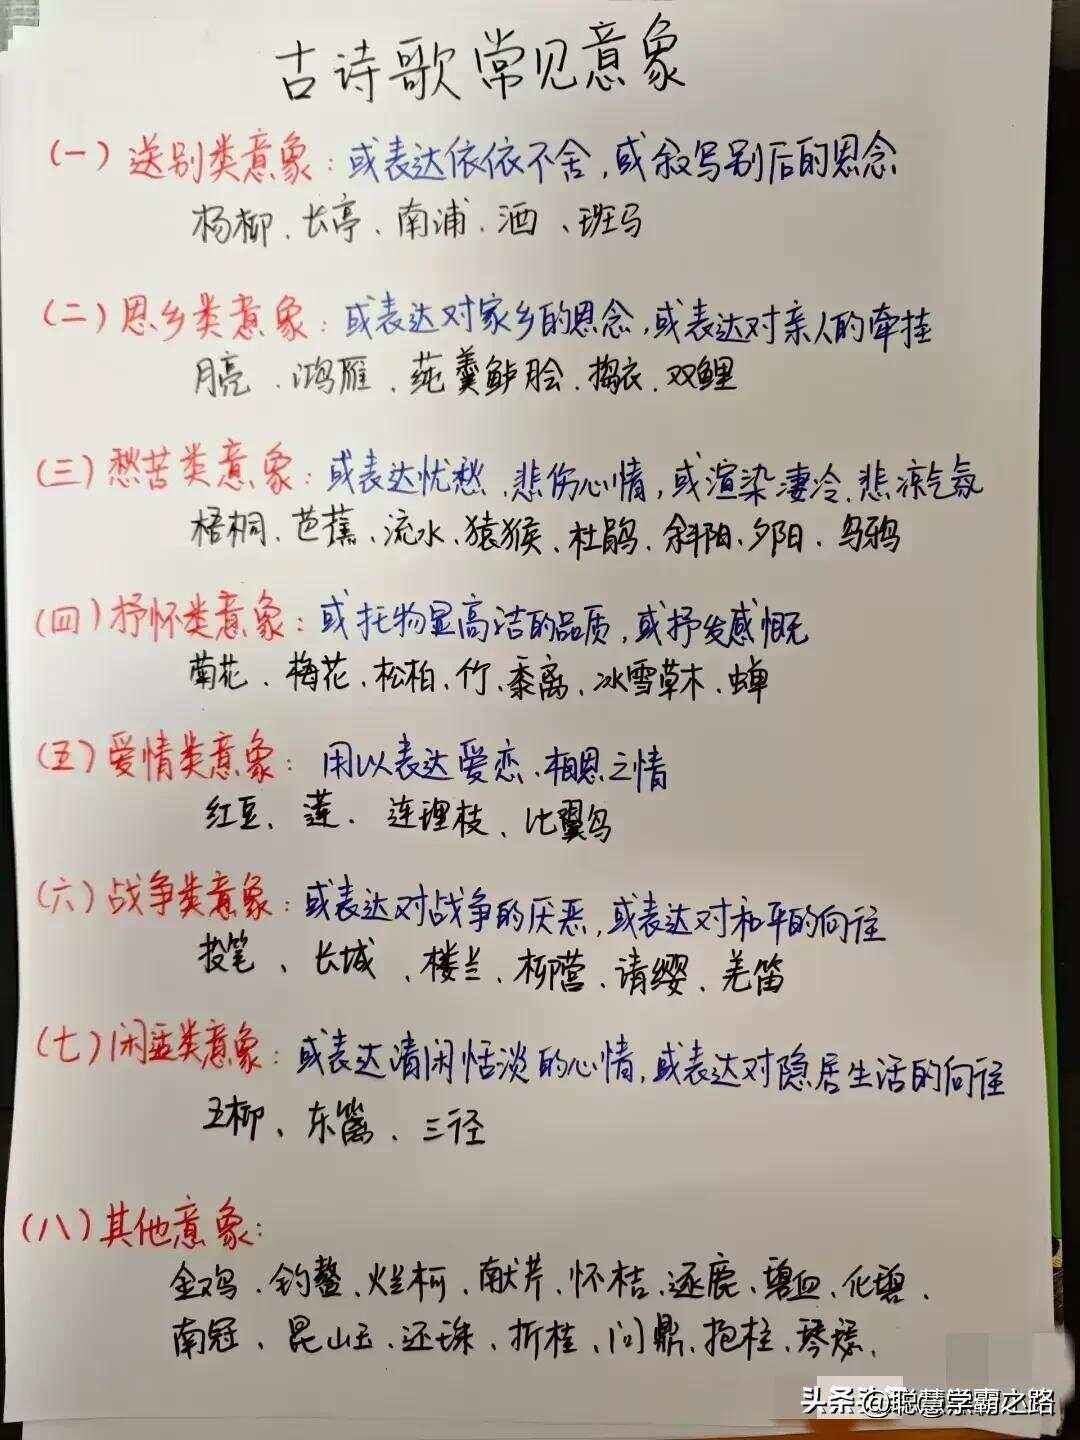 古诗歌常见意象
(一)送别类意象:或表达依依不舍,或叙写别后的思念
杨柳、长亭、南浦、酒、班马
(二)思乡类意象:或表达对家乡的思念,或表达对亲人的牵挂
月亮、鸿雁、莼羹鲈脍、捣衣、双鲤
(三)愁苦类意象:或表达忧愁、悲伤心情,或渲染凄冷、悲凉气氛
梧桐、芭蕉、流水、猿猴、杜鹃、斜阳、夕阳、乌鸦
(四)抒怀类意象:或托物显高洁的品质,或抒发感慨
菊花、梅花、松柏、竹、黍离、冰雪草木、蝉
(五)爱情类意象:用以表达爱恋、相思之情
红豆、莲、连理枝、比翼鸟
(六)战争类意象:或表达对战争的厌恶,或表达对和平的向往
投笔、长城、楼兰、柳营、请缨、羌笛
(七)闲适类意象:或表达清闲恬淡的心情,或表达对隐居生活的向往
五柳、东篱、三径
(八)其他意象:
金鸡、钓鳌、烂柯、献芹、怀桔、逐鹿、碧血、化碧、
南冠、昆山玉、还珠、折桂、问鼎、抱柱、琴瑟、
头条@聪慧学霸之路